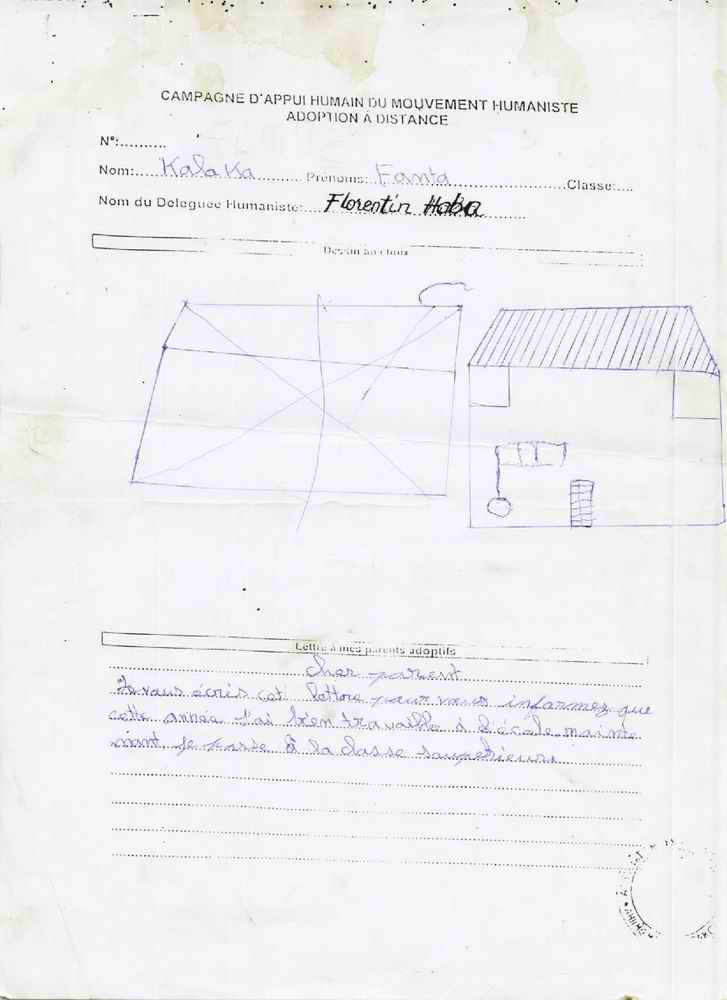 CAMPAGNE D'APPUI HUMAIN DU MOUVEMENT HUMANISTE
ADOPTION À DISTANCE
N°:..........
Nom:.....Kalaka.......... Prénoms: Fanta.......................Classe:....
Nom du Deleguée Humaniste:....Florentin Haba..........
Dessin au choix
Lettre à mes parents adoptifs
cher parent
Je vous écris cet lettore pour vous informez que
cette année J'ai bien travaillé à l'école mainte
nant je passe à la classe saupérieure